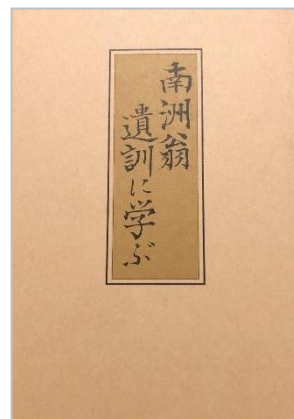 南洲翁
遺訓に学ぶ